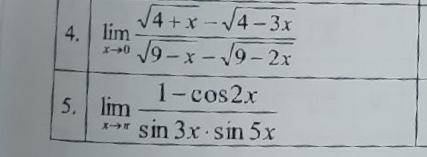 4. lim x→0 (√(4 + x) − √(4 − 3x)) / (√(9 − x) − √(9 − 2x))
5. lim x→π (1 − cos2x) / (sin 3x · sin 5x)